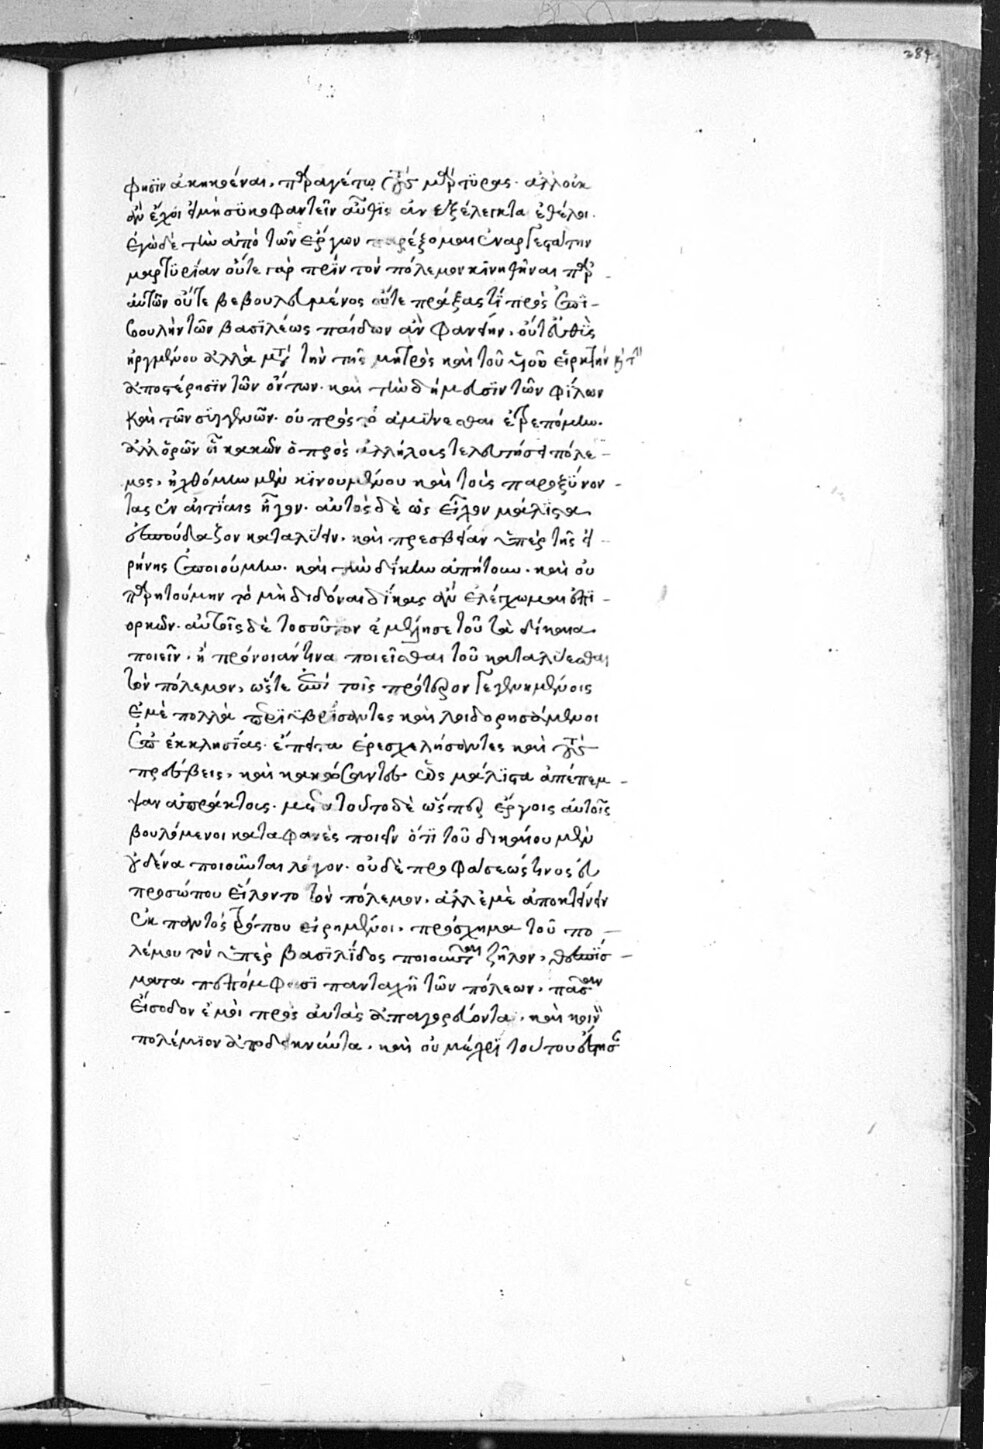 284
φησὶν ἀκηκοέναι, παραγέτω τοὺς μάρτυρας. ἀλλ' οὐκ
ἂν ἔχοι εἰ μὴ συκοφαντεῖν αὖθις ἀνεξέλεγκτα ἐθέλοι.
ἐγὼ δὲ τὴν ἀπὸ τῶν ἔργων παρέξομαι ἐναργεστάτην
μαρτυρίαν οὔτε γὰρ πρὶν τὸν πόλεμον κινηθῆναι παρ'
αὐτῶν οὔτε βεβουλευμένος οὔτε πράξας τὶ πρὸς ἐπι-
βουλὴν τῶν βασιλέως παίδων ἂν φανείην, οὔτ' εὐθὺς
ἠργμένου ἀλλὰ μετὰ τὴν τῆς μητρὸς καὶ τοῦ υἱοῦ εἱρκτὴν καὶ τὴν
ἀποστέρησιν τῶν ὄντων. καὶ τὴν δήμευσιν τῶν φίλων
καὶ τῶν συγγενῶν. οὐ πρὸς τὸ ἀμύνεσθαι ἐτρεπόμην.
ἀλλ' ὁρῶν οἷ κακῶν ὁ πρὸς ἀλλήλους τελευτήσει πόλε-
μος, ἠχθόμην μὲν κινουμένου καὶ τοὺς παροξύνον-
τας ἐν αἰτίαις ἦγον. αὐτὸς δὲ ὡς εἶχον μάλιστα
ἐσπούδαζον καταλύειν. καὶ πρεσβείαν ὑπὲρ τῆς εἰ-
ρήνης ἐποιούμην. καὶ τὴν δίκην ἀπῄτουν. καὶ οὐ
παρῃτούμην τὸ μὴ διδόναι δίκας ἂν ἐλέγχωμαι ἐπι-
ορκῶν. αὐτοῖς δὲ τοσοῦτον ἐμέλησε τοῦ τὰ δίκαια
ποιεῖν. ἢ πρόνοιάν τινα ποιεῖσθαι τοῦ καταλύεσθαι
τὸν πόλεμον, ὥστε ἐπὶ τοῖς πρότερον γεγενημένοις
ἐμὲ πολλὰ περιϋβρίσαντες καὶ λοιδορησάμενοι
ἐπ' ἐκκλησίας. ἔπειτα ἐρεσχελήσαντες καὶ τοὺς
πρέσβεις, καὶ κακώσαντες ὡς μάλιστα ἀπέπεμ-
ψαν ἀπράκτους. μετὰ τοῦτο δὲ ὥσπερ ἔργοις αὐτοῖς
βουλόμενοι καταφανὲς ποιεῖν ὅτι τοῦ δικαίου μὲν
οὐδένα ποιοῦνται λόγον. οὐδὲ προφάσεώς τινος εὐ
προσώπου εἵλοντο τὸν πόλεμον. ἀλλ' ἐμὲ ἀποκτεῖναι
ἐκ παντὸς τρόπου εἰρημένοι, πρόσχημα τοῦ πο-
λέμου τὸν ὑπὲρ βασιλίδος ποιοῦνται ζῆλον, θεσπίσ-
ματα πέπομφασι πανταχῆ τῶν πόλεων, πᾶσαν
εἴσοδον ἐμοὶ πρὸς αὐτὰς ἀπαγορεύοντα. καὶ κοινὸν
πολέμιον ἀποδεικνύντα. καὶ οὐ μέχρι τούτου ἔστησαν